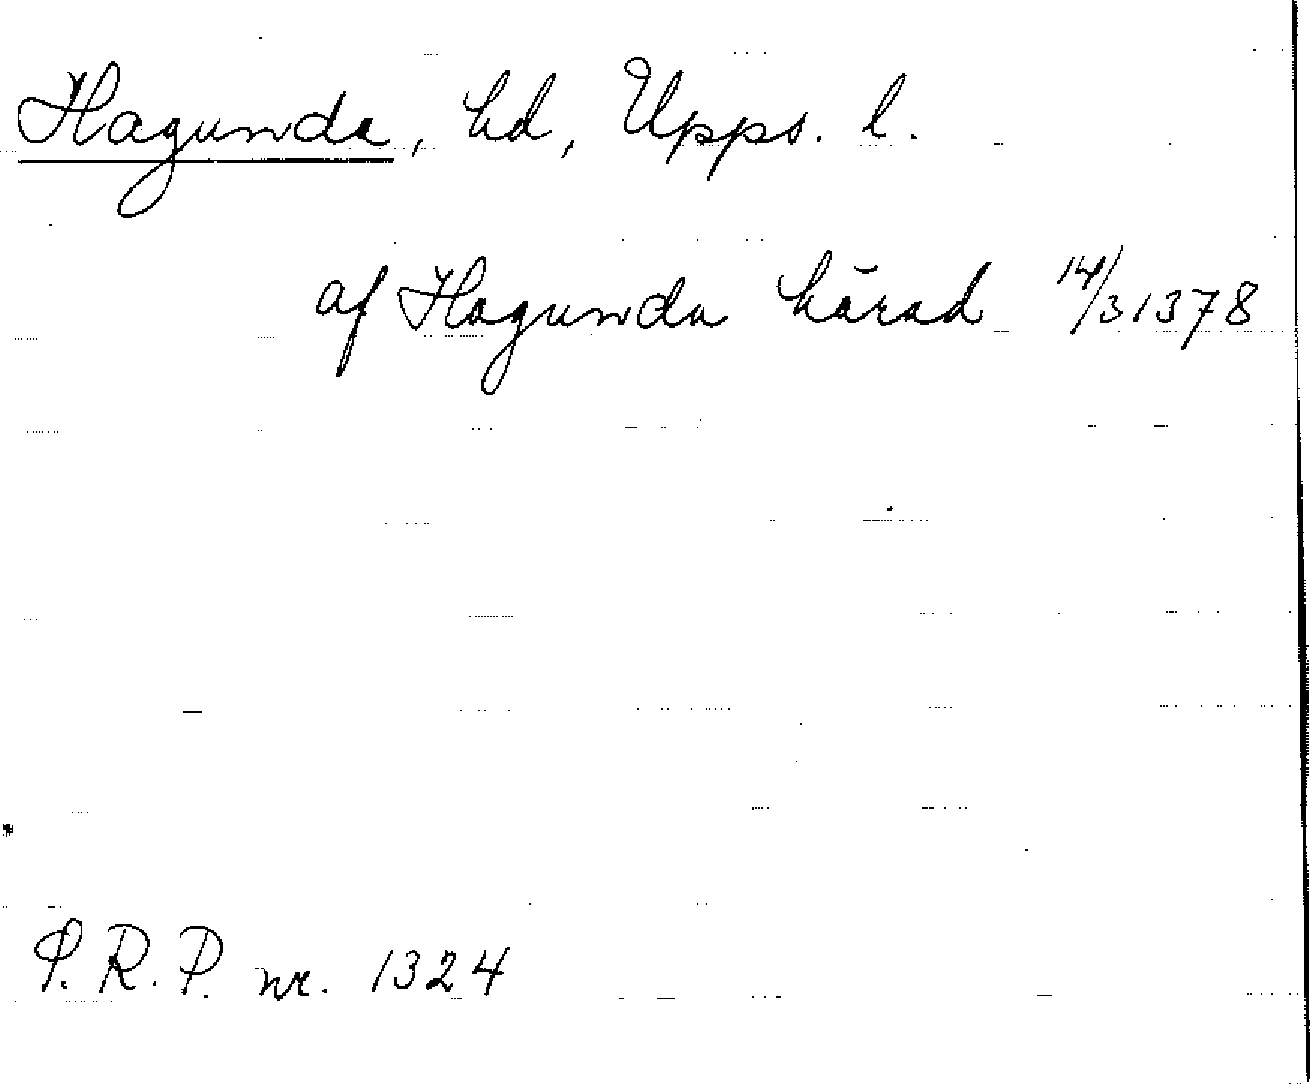 Hagunda, hd, Upps. l.
af Hagunda härad 14/3 1378
P. R. P. nr. 1324